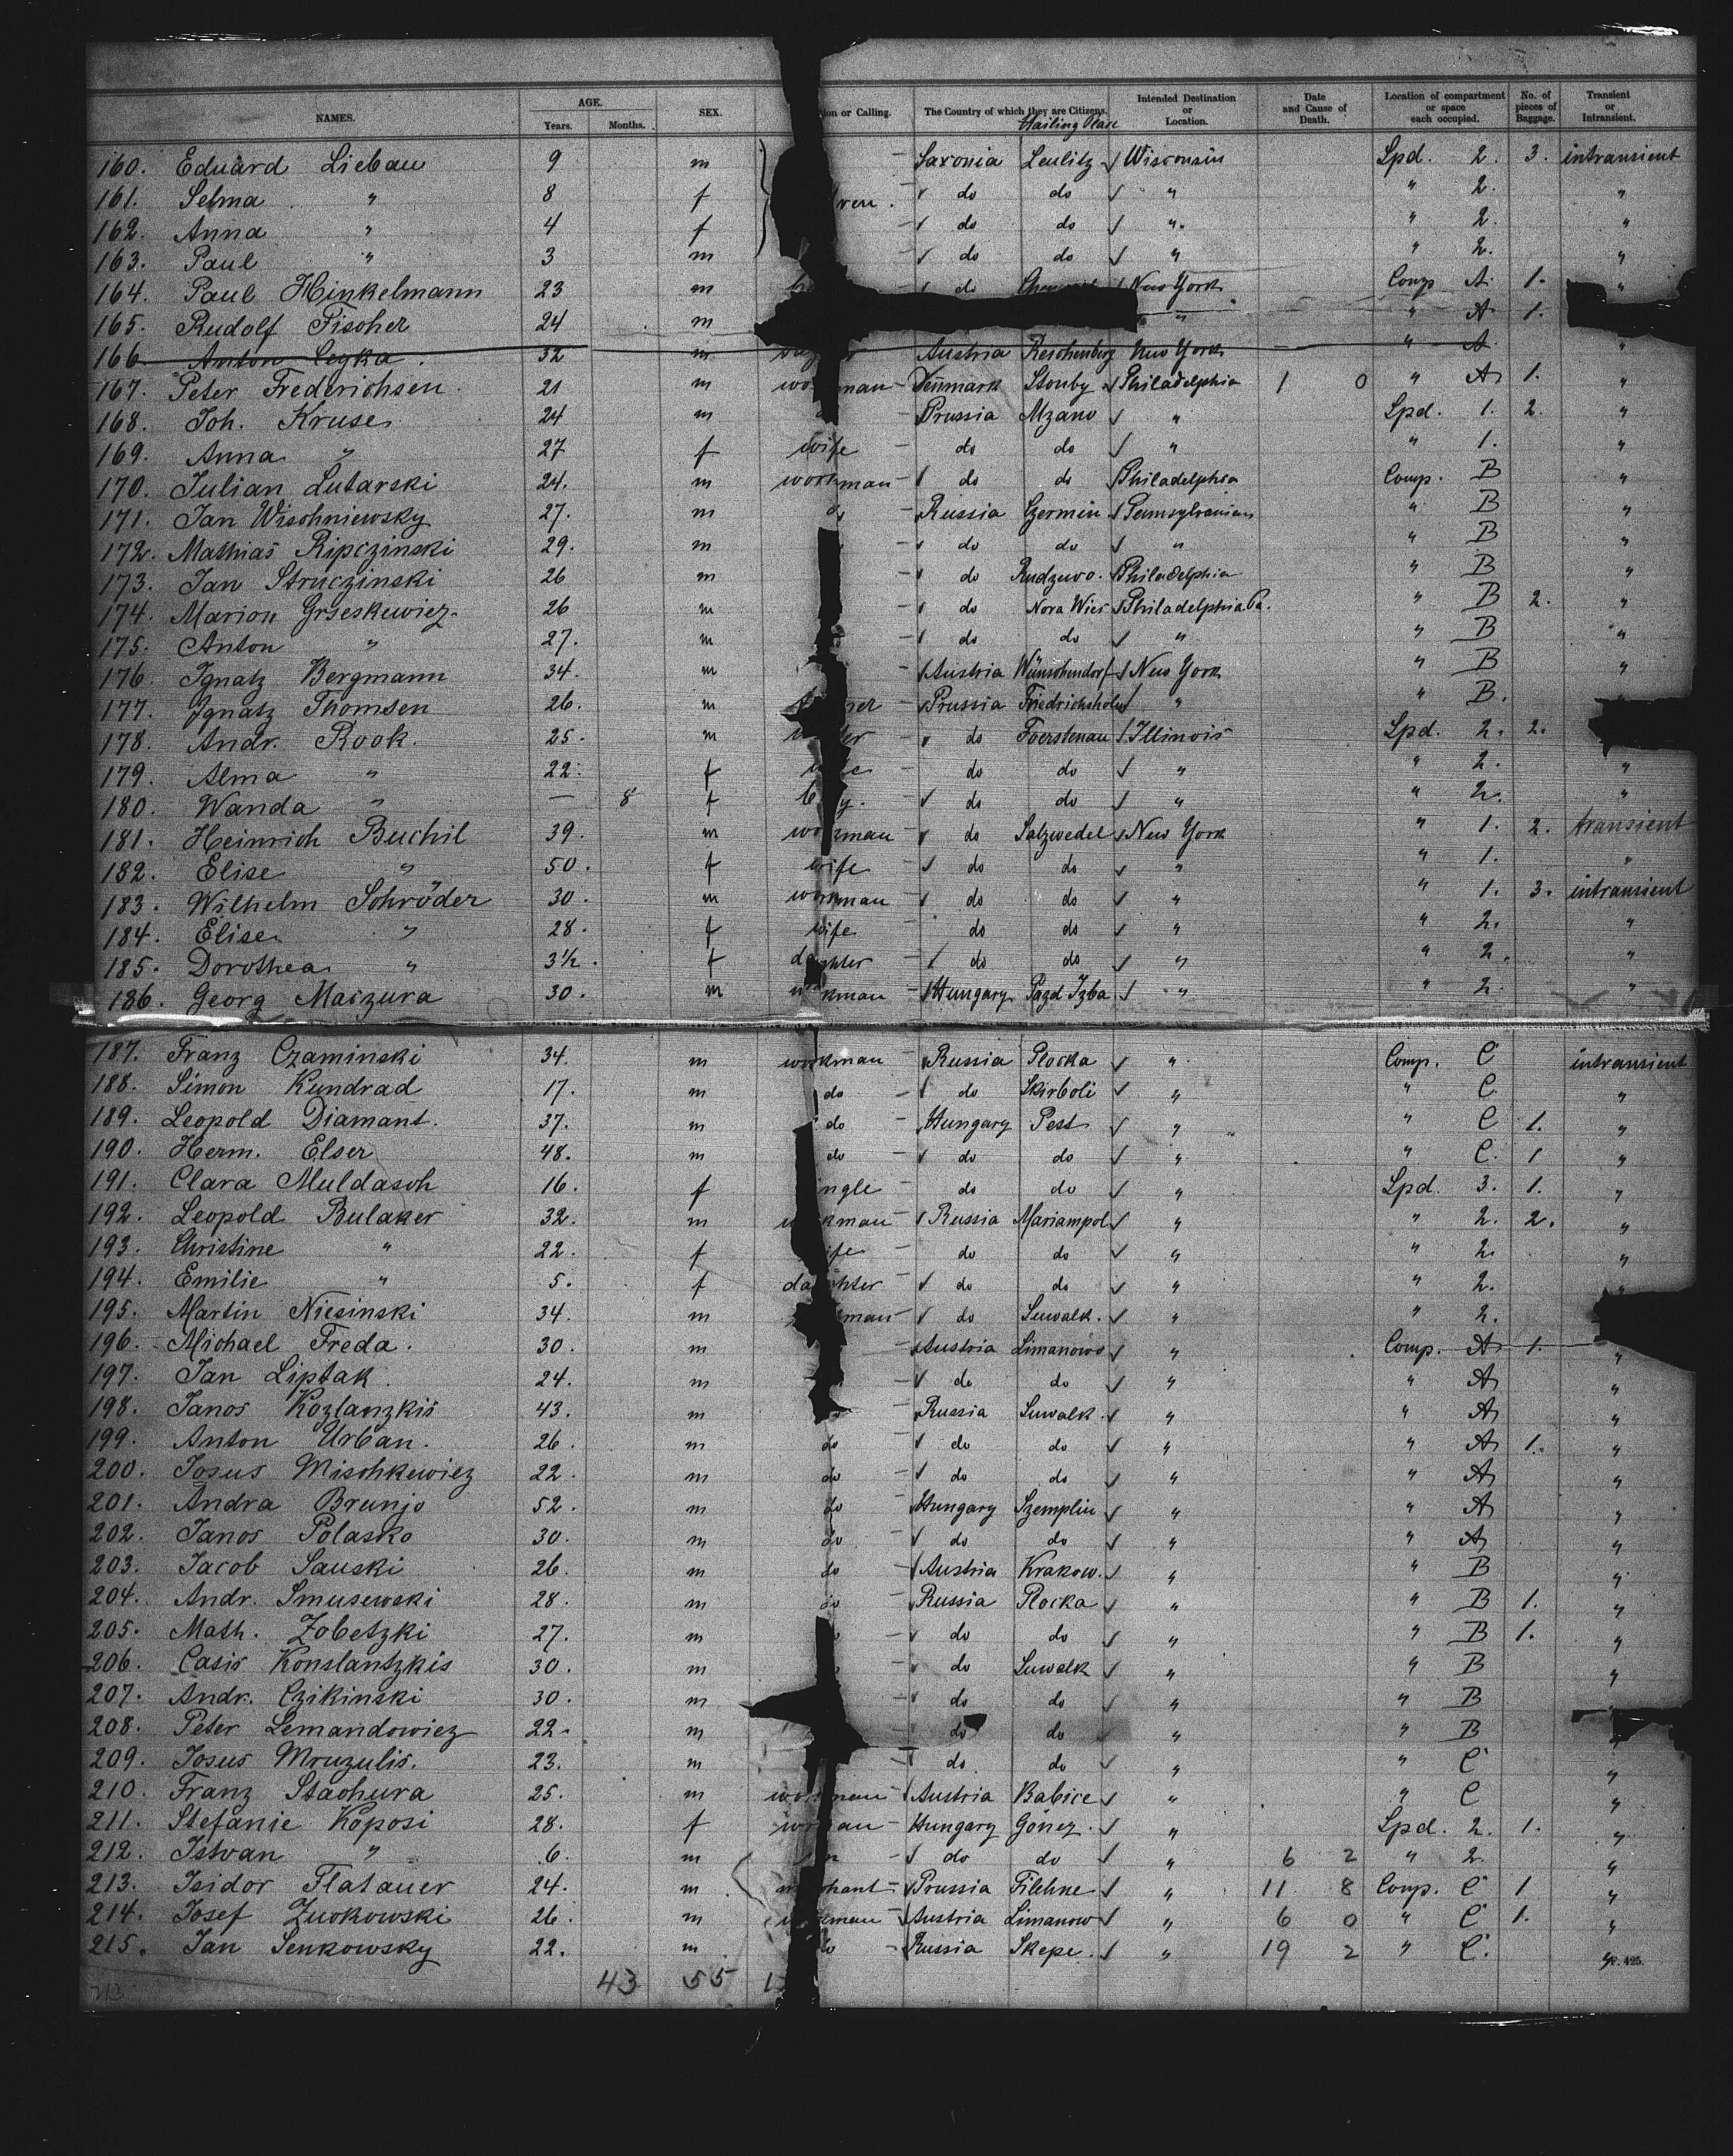 NAMES. AGE. Years. Months. SEX. ion or Calling. The Country of which they are Citizens. Hailing Place Intended Destination or Location. Date and Cause of Death. Location of compartment or space each occupied. No. of pieces of Baggage. Transient or Intransient.
160. Eduard Liebau 9 m Saxonia Leulitz Wisconsin Spd. 2. 3. intransient
161. Selma " 8 f ren. do do " " 2. "
162. Anna " 4 f do do " " 2. "
163. Paul " 3 m do do " " 2. "
164. Paul Hinkelmann 23 m do New York Comp A. 1. "
165. Rudolf Fischer 24 m " " A. 1.
166 Anton Ceyka. 32 m Austria Reichenberg New York " A "
167. Peter Frederichsen 21 m workman Denmark Stouby Philadelphia 1 0 " A 1. "
168. Joh. Kruse 24 m Prussia Mzano " Spd. 1. 2. "
169. Anna " 27 f wife do do " " 1. "
170. Julian Lutarski 24. m workman do do Philadelphia Comp. B "
171. Jan Wischniewsky 27. m Russia Czermin Pennsylvanien " B "
172. Mathias Ripczinski 29. m do do " " B "
173. Jan Struczinski 26 m do Rudzuvo. Philadelphia " B "
174. Marion Grseskewiez 26 m do Nora Wies Philadelphia Pa. " B 2. "
175. Anton " 27. m do do " " B "
176. Ignatz Bergmann 34. m Austria Wünschendorf New York " B "
177. Ignatz Thomsen 26. m Prussia Friedrichsholm " " B.
178. Andr. Rook. 25. m do Foerstenau Illinois Spd. 2. 2.
179. Alma " 22. f do do " " 2. "
180. Wanda " — 8 f do do " " 2. "
181. Heinrich Buchil 39. m workman do Salzwedel New York " 1. 2. transient
182. Elise " 50. f wife do do " " 1. "
183. Wilhelm Schröder 30. m workman do do " " 1. 3. intransient
184. Elise " 28. f wife do do " " 2. "
185. Dorothea " 3½. f daughter do do " " 2. "
186. Georg Maczura 30. m workman Hungary Pazd Izba " " 2. "
187. Franz Czaminski 34. m workman Russia Plocka " Comp. C intransient
188. Simon Kundrad 17. m do do Skirboli " " C "
189. Leopold Diamant. 37. m do Hungary Pest " " C 1. "
190. Herm. Elser 48. m do do do " " C. 1 "
191. Clara Muldasch 16. f ingle do do " Spd. 3. 1. "
192. Leopold Bulaker 32. m workman Russia Mariampol " " 2. 2. "
193. Christine " 22. f ife do do " " 2. "
194. Emilie " 5. f daughter do do " " 2. "
195. Martin Niesinski 34. m man do Suwalk. " " 2.
196. Michael Freda. 30. m Austria Limanowo " Comp. A 1. "
197. Jan Liptak 24. m do do " " A "
198. Janos Kozlanzkis 43. m Russia Suwalk. " " A "
199. Anton Urban. 26. m do do do " " A 1. "
200. Josus Mischkewiez 22. m do do do " " A "
201. Andra Brunjo 52. m do Hungary Szemplin " " A "
202. Janos Polasko 30. m do do do " " A "
203. Jacob Sauski 26. m do Austria Krakow. " " B "
204. Andr. Smusewski 28. m do Russia Plocka " " B 1. "
205. Math. Zobetzki 27. m do do " " B 1. "
206. Casis Konslantzkis 30. m do Suwalk " " B "
207. Andr. Czikinski 30. m do do " " B
208. Peter Lemandowiez 22. m do do " " B "
209. Josus Mruzulis. 23. m do do " " C "
210. Franz Stachura 25. m workman Austria Babice " " C "
211. Stefanie Koposi 28. f Hungary Gönez. " Spd. 2. 1. "
212. Istvan " 6. m do do " 6 2 " 2. "
213. Isidor Flatauer 24. m merchant Prussia Filehne " 11 8 Comp. C 1 "
214. Josef Zuckowski 26. m workman Austria Limanow " 6 0 " C 1. "
215. Jan Senkowsky 22. m Russia Skepe. " 19 2 " C. "
213 43 55